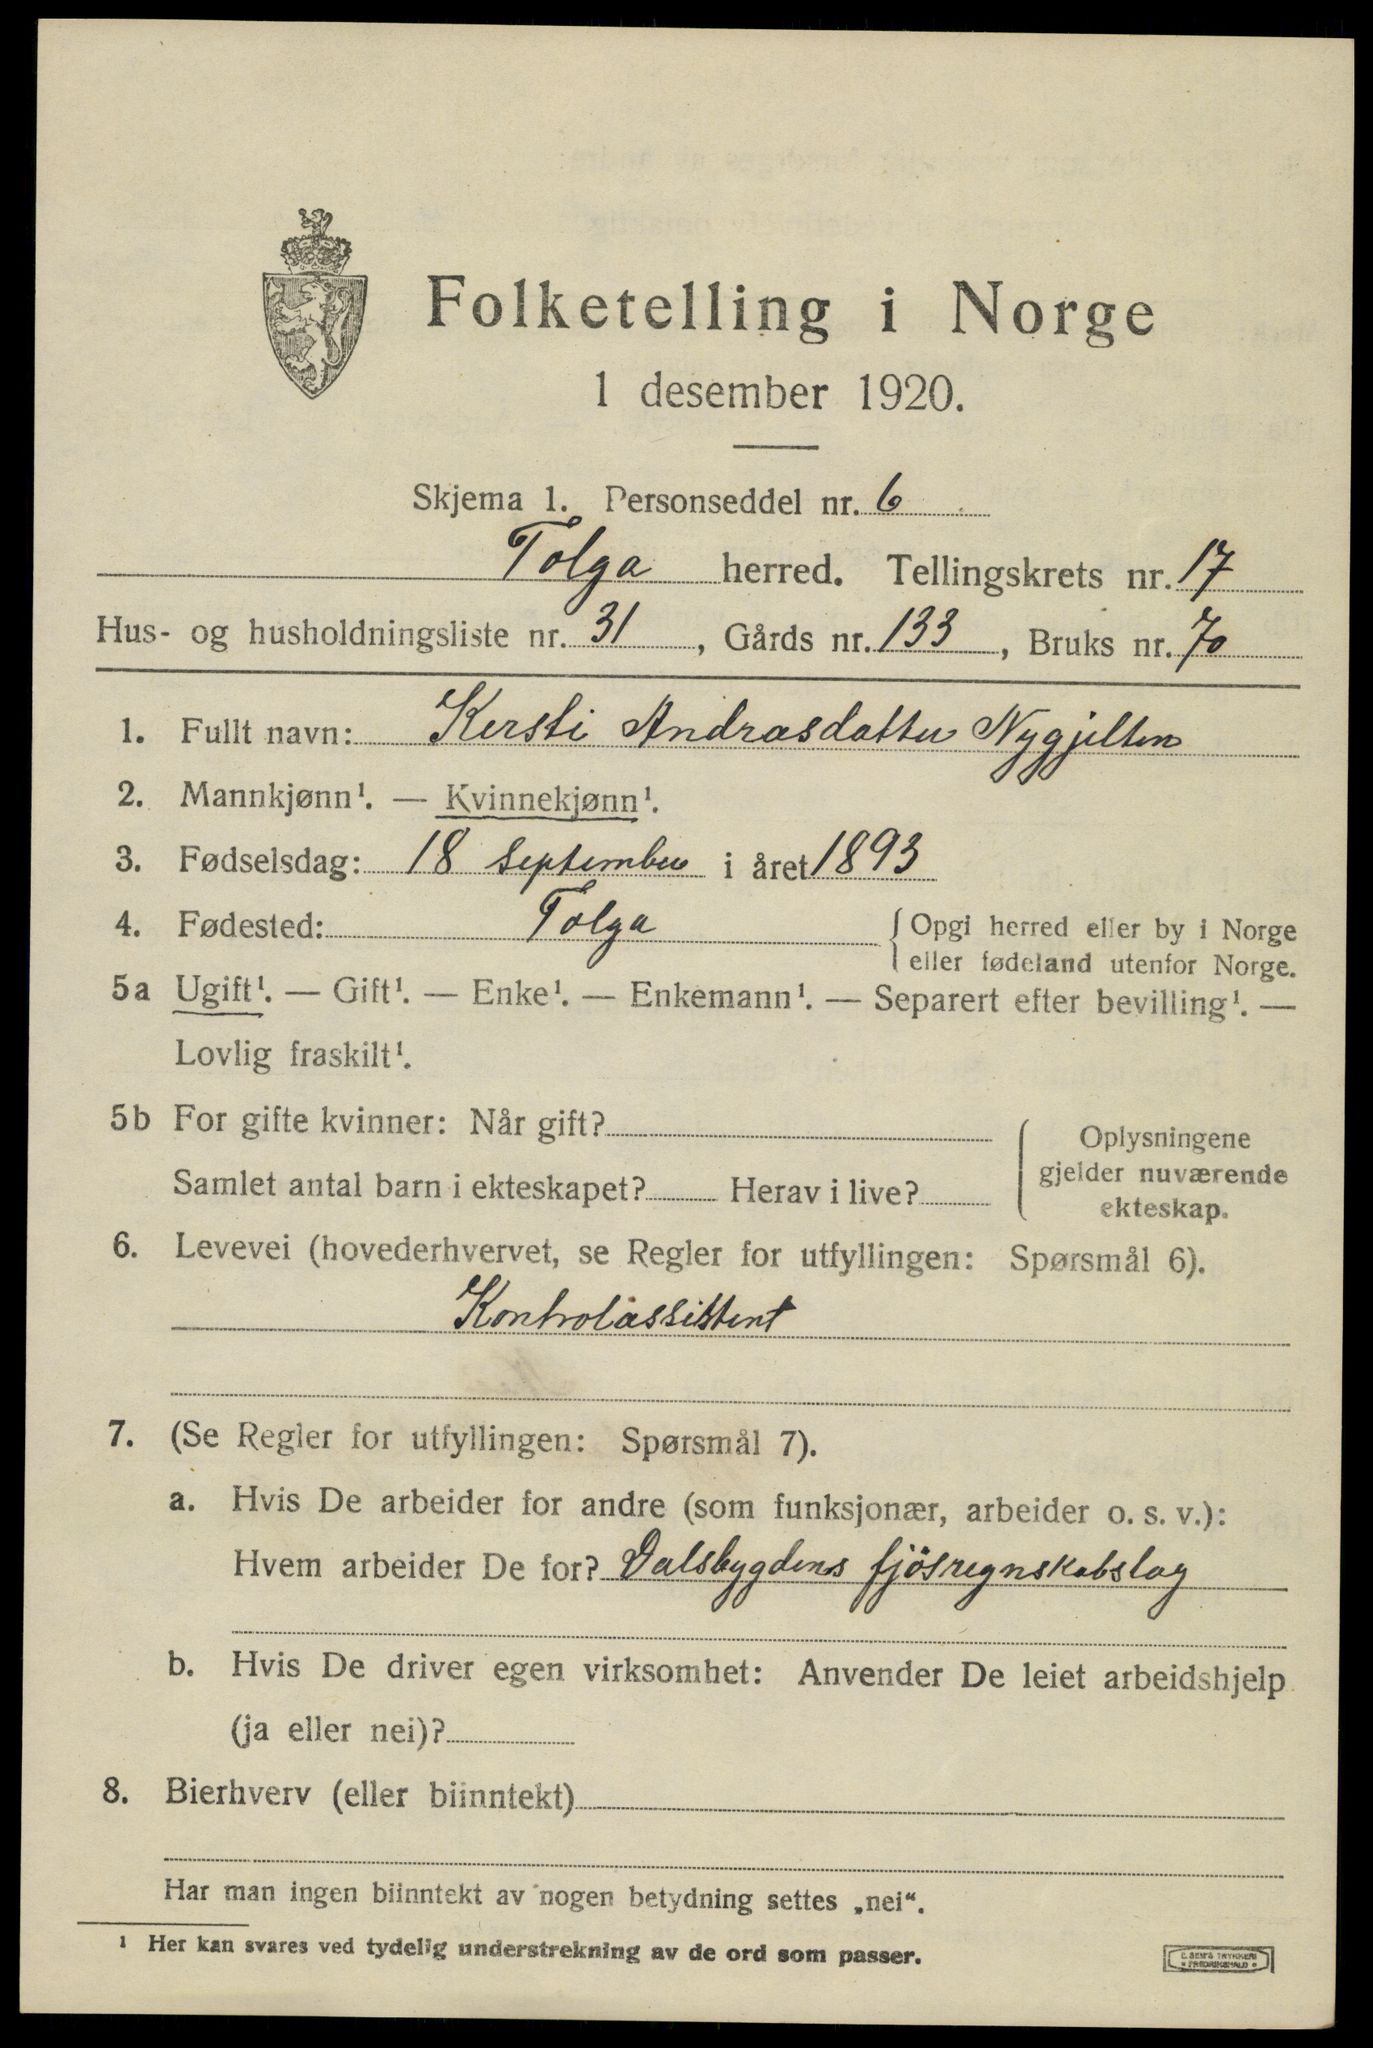 Folketelling i Norge
1 desember 1920.
Skjema 1. Personseddel nr. 6
Tolga herred. Tellingskrets nr. 17
Hus- og husholdningsliste nr. 31, Gårds nr. 133, Bruks nr. 70
1. Fullt navn: Kersti Andrasdatter Nygjelten
2. Mannkjønn¹. — Kvinnekjønn¹.
3. Fødselsdag: 18 september i året 1893
4. Fødested: Tolga { Opgi herred eller by i Norge
eller fødeland utenfor Norge.
5a Ugift¹. — Gift¹. — Enke¹. — Enkemann¹. — Separert efter bevilling¹. —
Lovlig fraskilt¹.
5b For gifte kvinner: Når gift?
Samlet antal barn i ekteskapet? Herav i live?
Oplysningene
gjelder nuværende
ekteskap.
6. Levevei (hovederhvervet, se Regler for utfyllingen: Spørsmål 6).
Kontrolassistent
7. (Se Regler for utfyllingen: Spørsmål 7).
a. Hvis De arbeider for andre (som funksjonær, arbeider o. s. v.):
Hvem arbeider De for? Dalsbygdens fjösregnskabslag
b. Hvis De driver egen virksomhet: Anvender De leiet arbeidshjelp
(ja eller nei)?
8. Bierhverv (eller biinntekt)
Har man ingen biinntekt av nogen betydning settes „nei“.
¹ Her kan svares ved tydelig understrekning av de ord som passer.
E. SEM'S TRYKKERI
FREDRIKSHALD